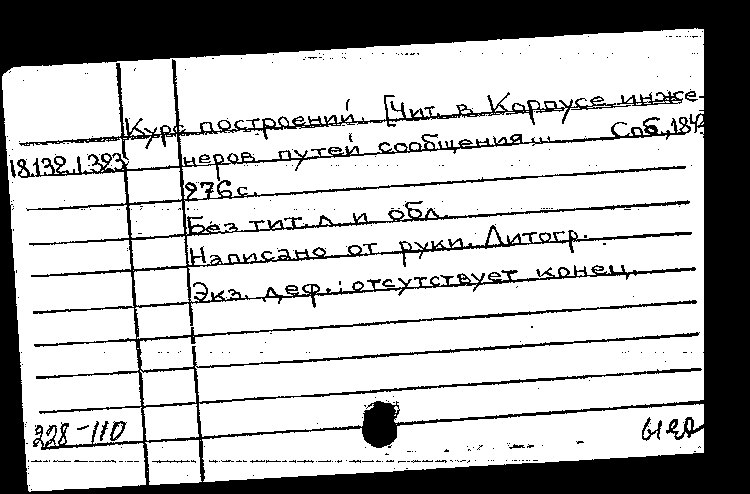 Курс построений. [Чит. в Корпусе инже-
18.132.1.323 неров путей сообщения... Спб.,
276с.
Без тит. л и обл.
Написано от руки. Литогр.
Экз. деф.: отсутствует конец.
228-110